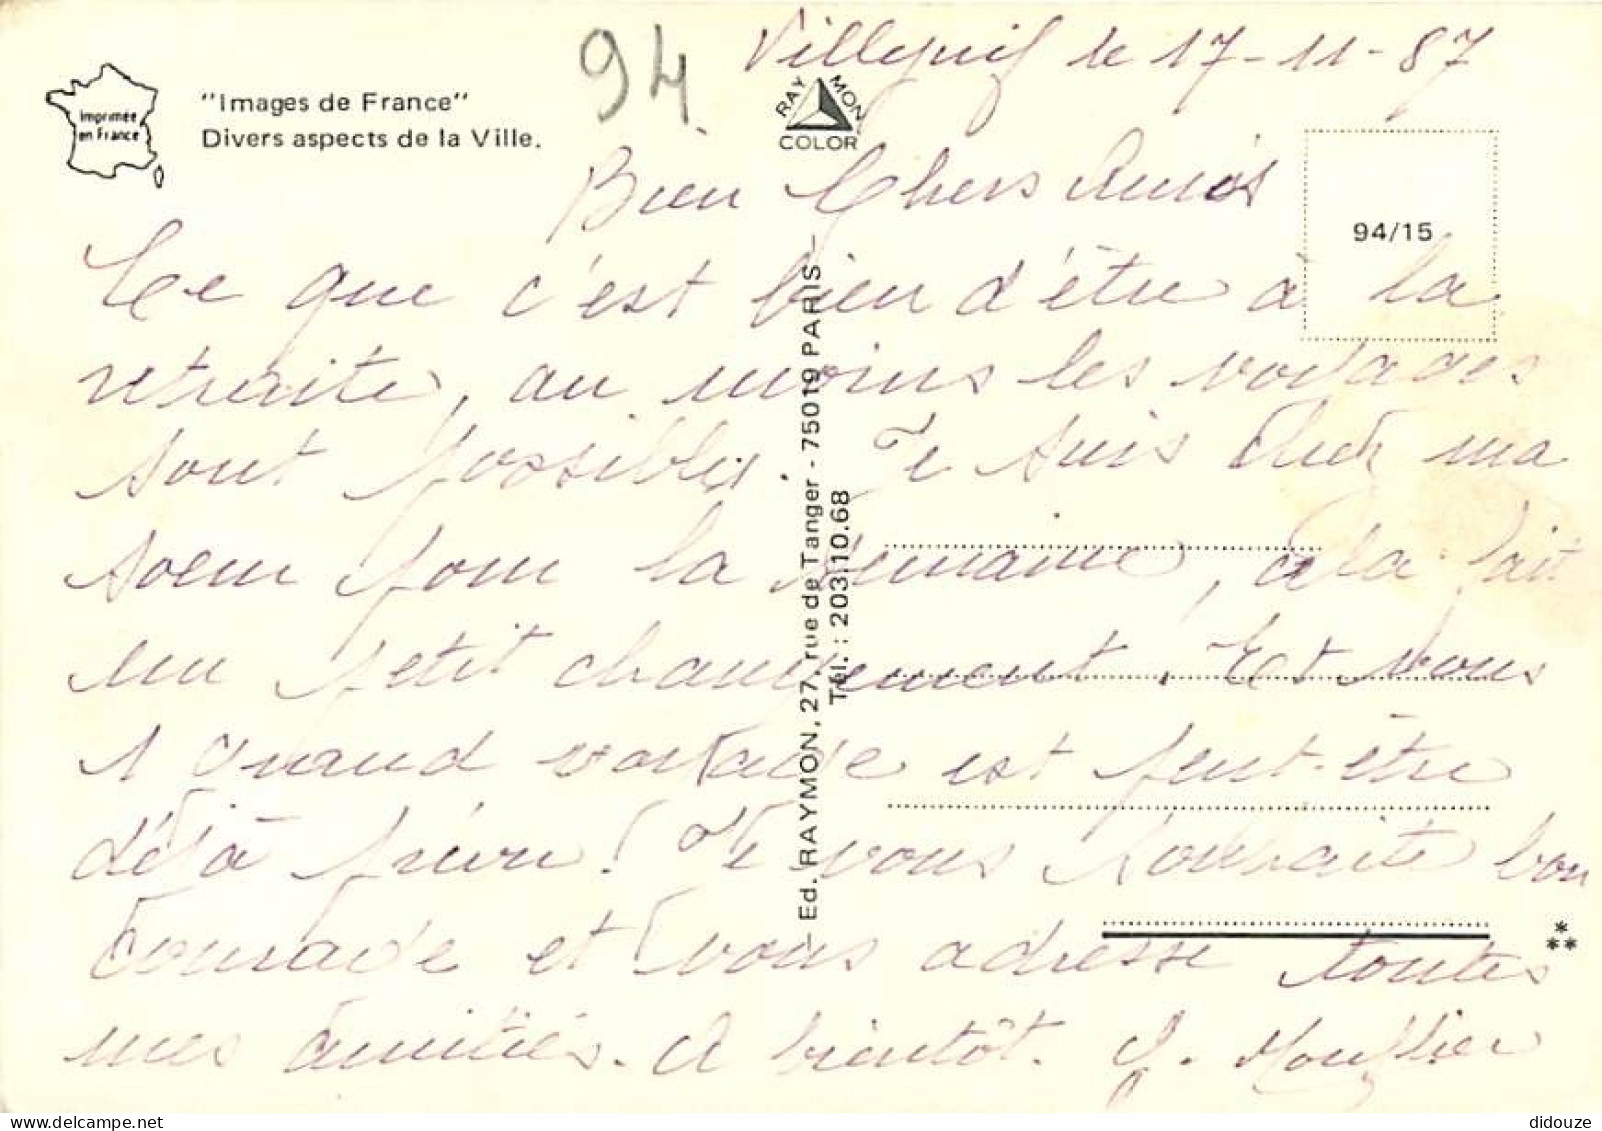 94
Villejuif le 17-11-87
Imprimée
en France
"Images de France"
Divers aspects de la Ville.
RAYMON
COLOR
94/15
Bien Chers Amis
Ce que c'est bien d'être à la
retraite, au moins les voyages
sont possibles. Je suis chez ma
soeur pour la semaine, cela fait
un petit changement. Et vous
quand voyage est peut-être
déjà prévu! Je vous souhaite bon
courage et vous adresse toutes
mes amitiés. A bientôt. J.
Ed. RAYMON, 27, rue de Tanger - 75019 PARIS
Tél. : 203.10.68
didouze